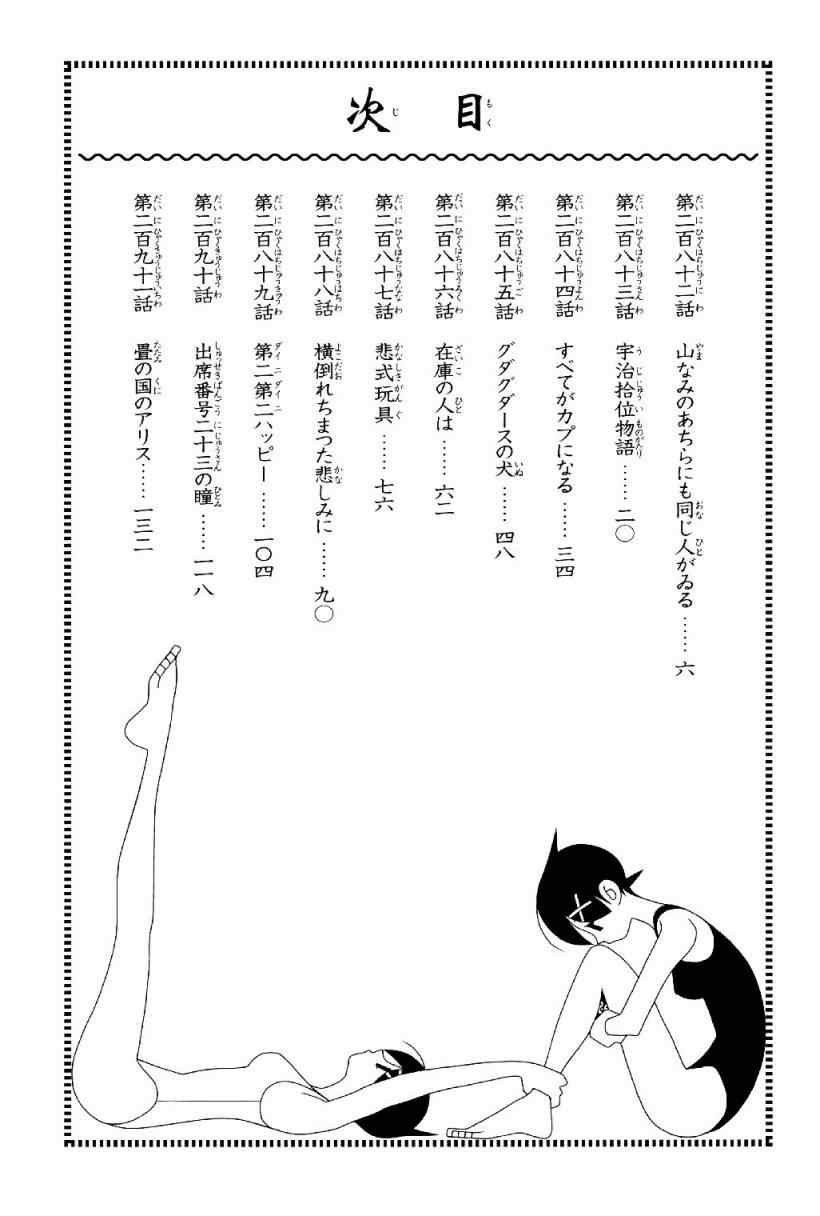 目次
第二百八十二話 山なみのあちらにも同じ人がゐる …… 六
第二百八十三話 宇治拾位物語 …… 二〇
第二百八十四話 すべてがカブになる …… 三四
第二百八十五話 グダグダースの犬 …… 四八
第二百八十六話 在庫の人は …… 六二
第二百八十七話 悲式玩具 …… 七六
第二百八十八話 横倒れちまつた悲しみに …… 九〇
第二百八十九話 第二第二ハッピー …… 一〇四
第二百九十話 出席番号二十三の瞳 …… 一一八
第二百九十一話 畳の国のアリス …… 一三二